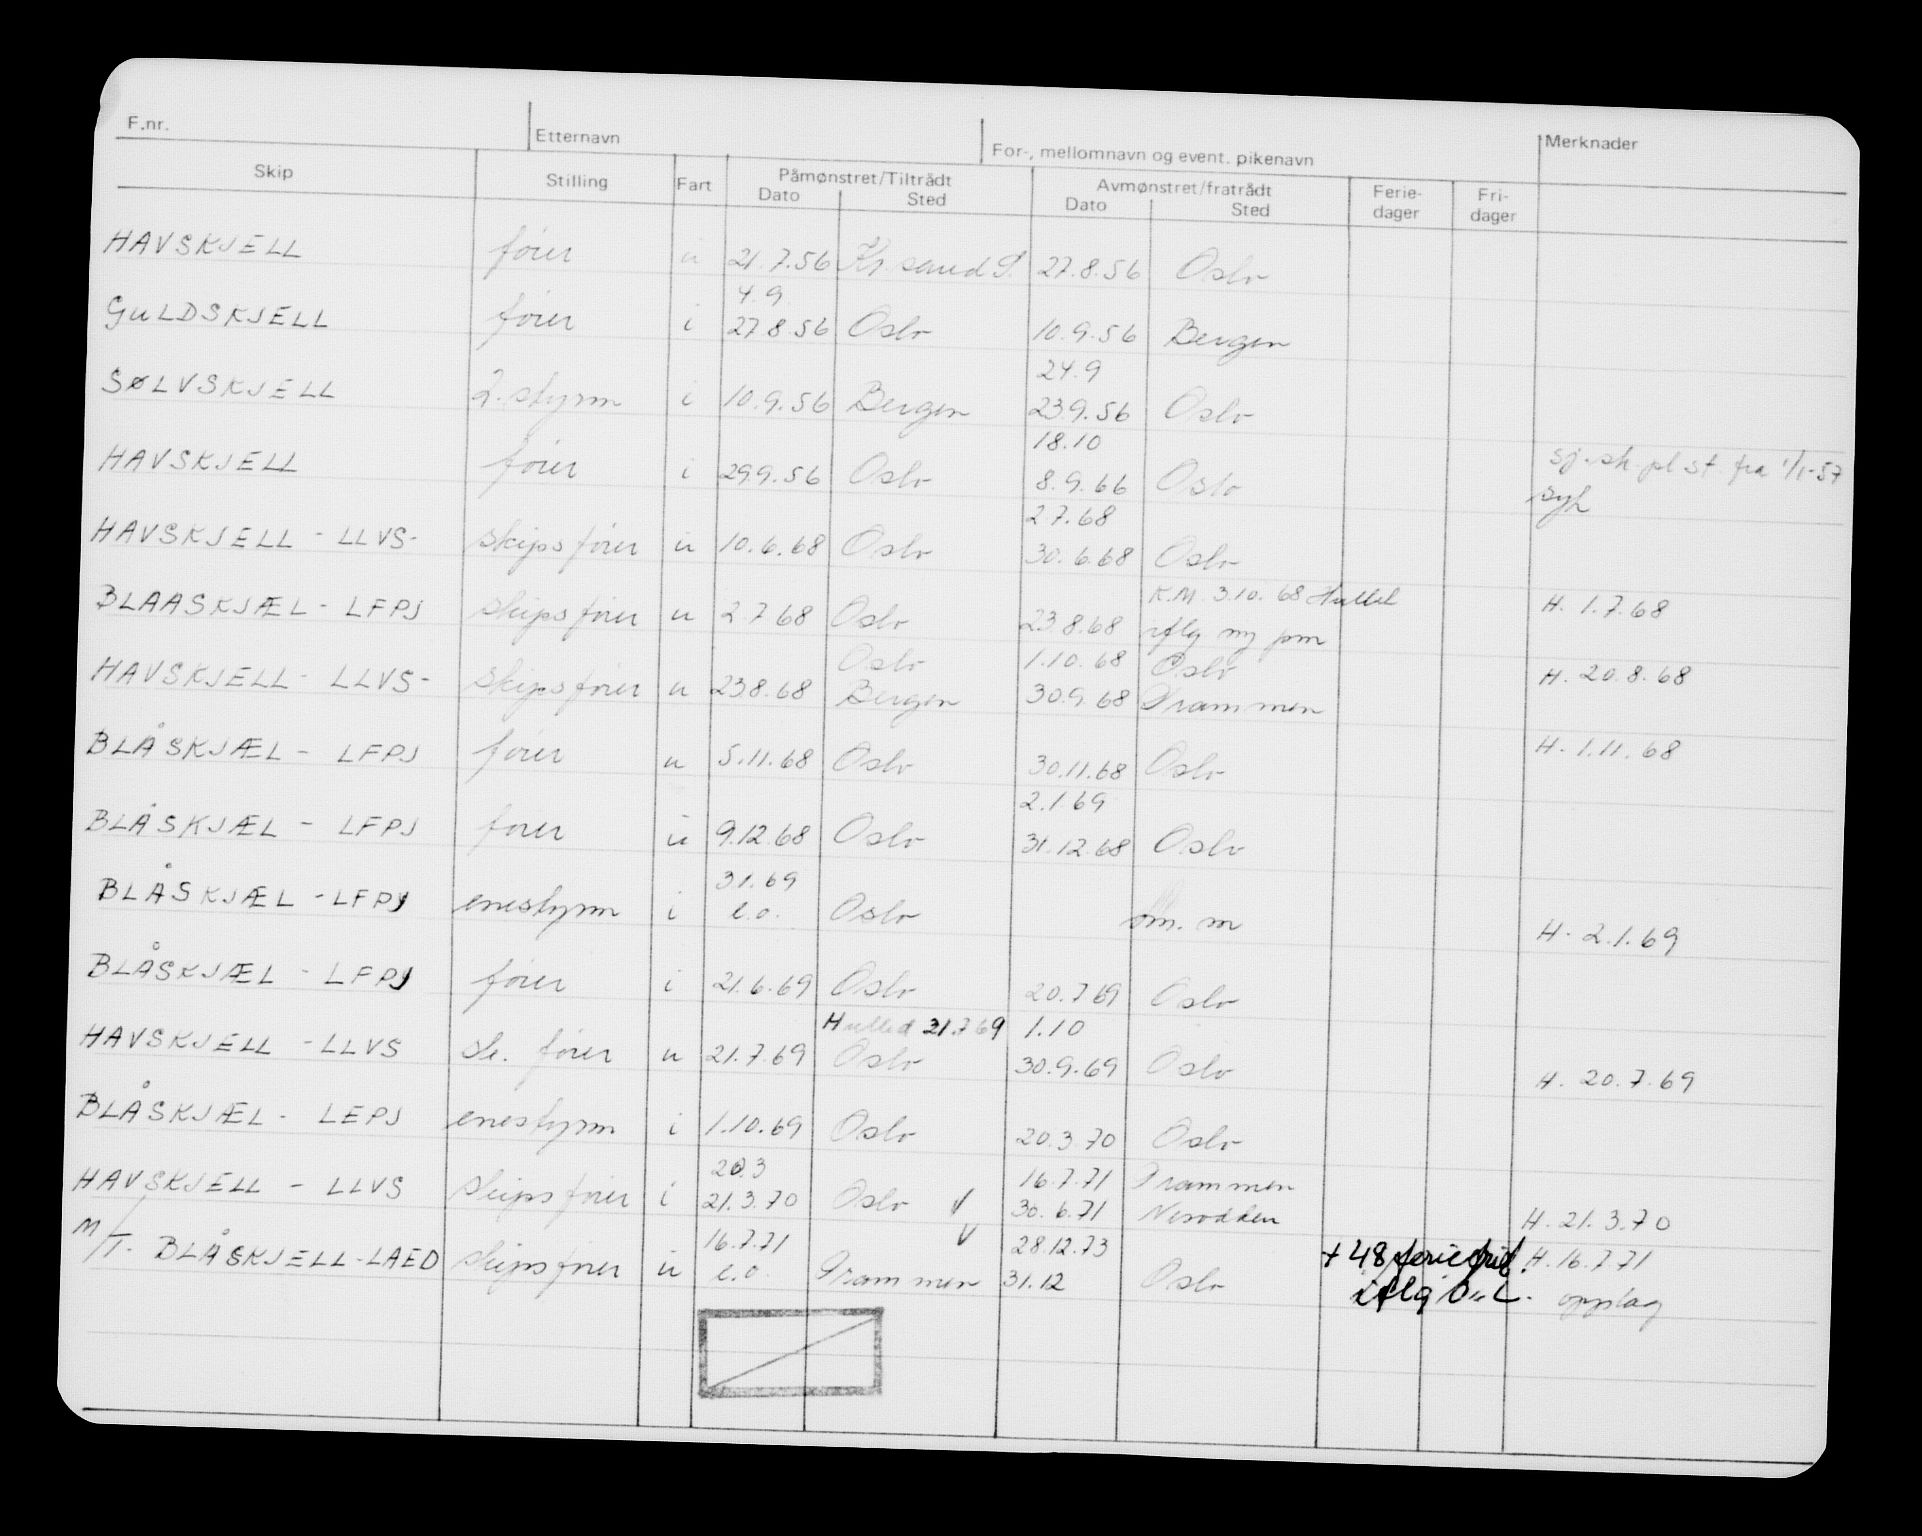 F.nr. Etternavn For-, mellomnavn og event. pikenavn Merknader
Skip Stilling Fart Påmønstret/Tiltrådt Avmønstret/fratrådt Ferie- Fri-
Dato Sted Dato Sted dager dager
HAVSKJELL fører u 21.7.56 Kr.sand S. 27.8.56 Oslo
4.9
GULDSKJELL fører i 27.8.56 Oslo 10.9.56 Bergen
24.9
SØLVSKJELL 2.styrm i 10.9.56 Bergen 23.9.56 Oslo
18.10 sj.sk.pl st. fra 1/1-57
HAVSKJELL fører i 29.9.56 Oslo 8.9.66 Oslo syk
2 7.68
HAVSKJELL - LLVS- skipsfører u 10.6.68 Oslo 30.6.68 Oslo
K.M. 3.10.68 Hullet
BLAASKJÆL - LFPJ skipsfører u 2.7.68 Oslo 23.8.68 iflg ny pm H. 1.7.68
Oslo 1.10.68 Oslo
HAVSKJELL - LLVS- skipsfører u 23.8.68 Bergen 30.9.68 Drammen H. 20.8.68
BLÅSKJÆL - LFPJ fører u 5.11.68 Oslo 30.11.68 Oslo H. 1.11.68
2.1.69
BLÅSKJÆL - LFPJ fører u 9.12.68 Oslo 31.12.68 Oslo
3.1.69
BLÅSKJÆL - LFPJ enestyrm i l.o. Oslo om. m H. 2.1.69
BLÅSKJÆL - LFPJ fører i 21.6.69 Oslo 20.7.69 Oslo
Hulled 21.7.69 1.10
HAVSKJELL - LLVS sk. fører u 21.7.69 Oslo 30.9.69 Oslo H. 20.7.69
BLÅSKJÆL - LEPJ enestyrm i 1.10.69 Oslo 20.3.70 Oslo
20.3 16.7.71 Drammen
HAVSKJELL - LLVS skipsfører i 21.3.70 Oslo 30.6.71 Nesodden H. 21.3.70
16.7.71 28.12.73 + 48 H. 16.7.71
M/T. BLÅSKJELL-LAED skipsfører u l.o. Drammen 31.12 Oslo iflg opplag